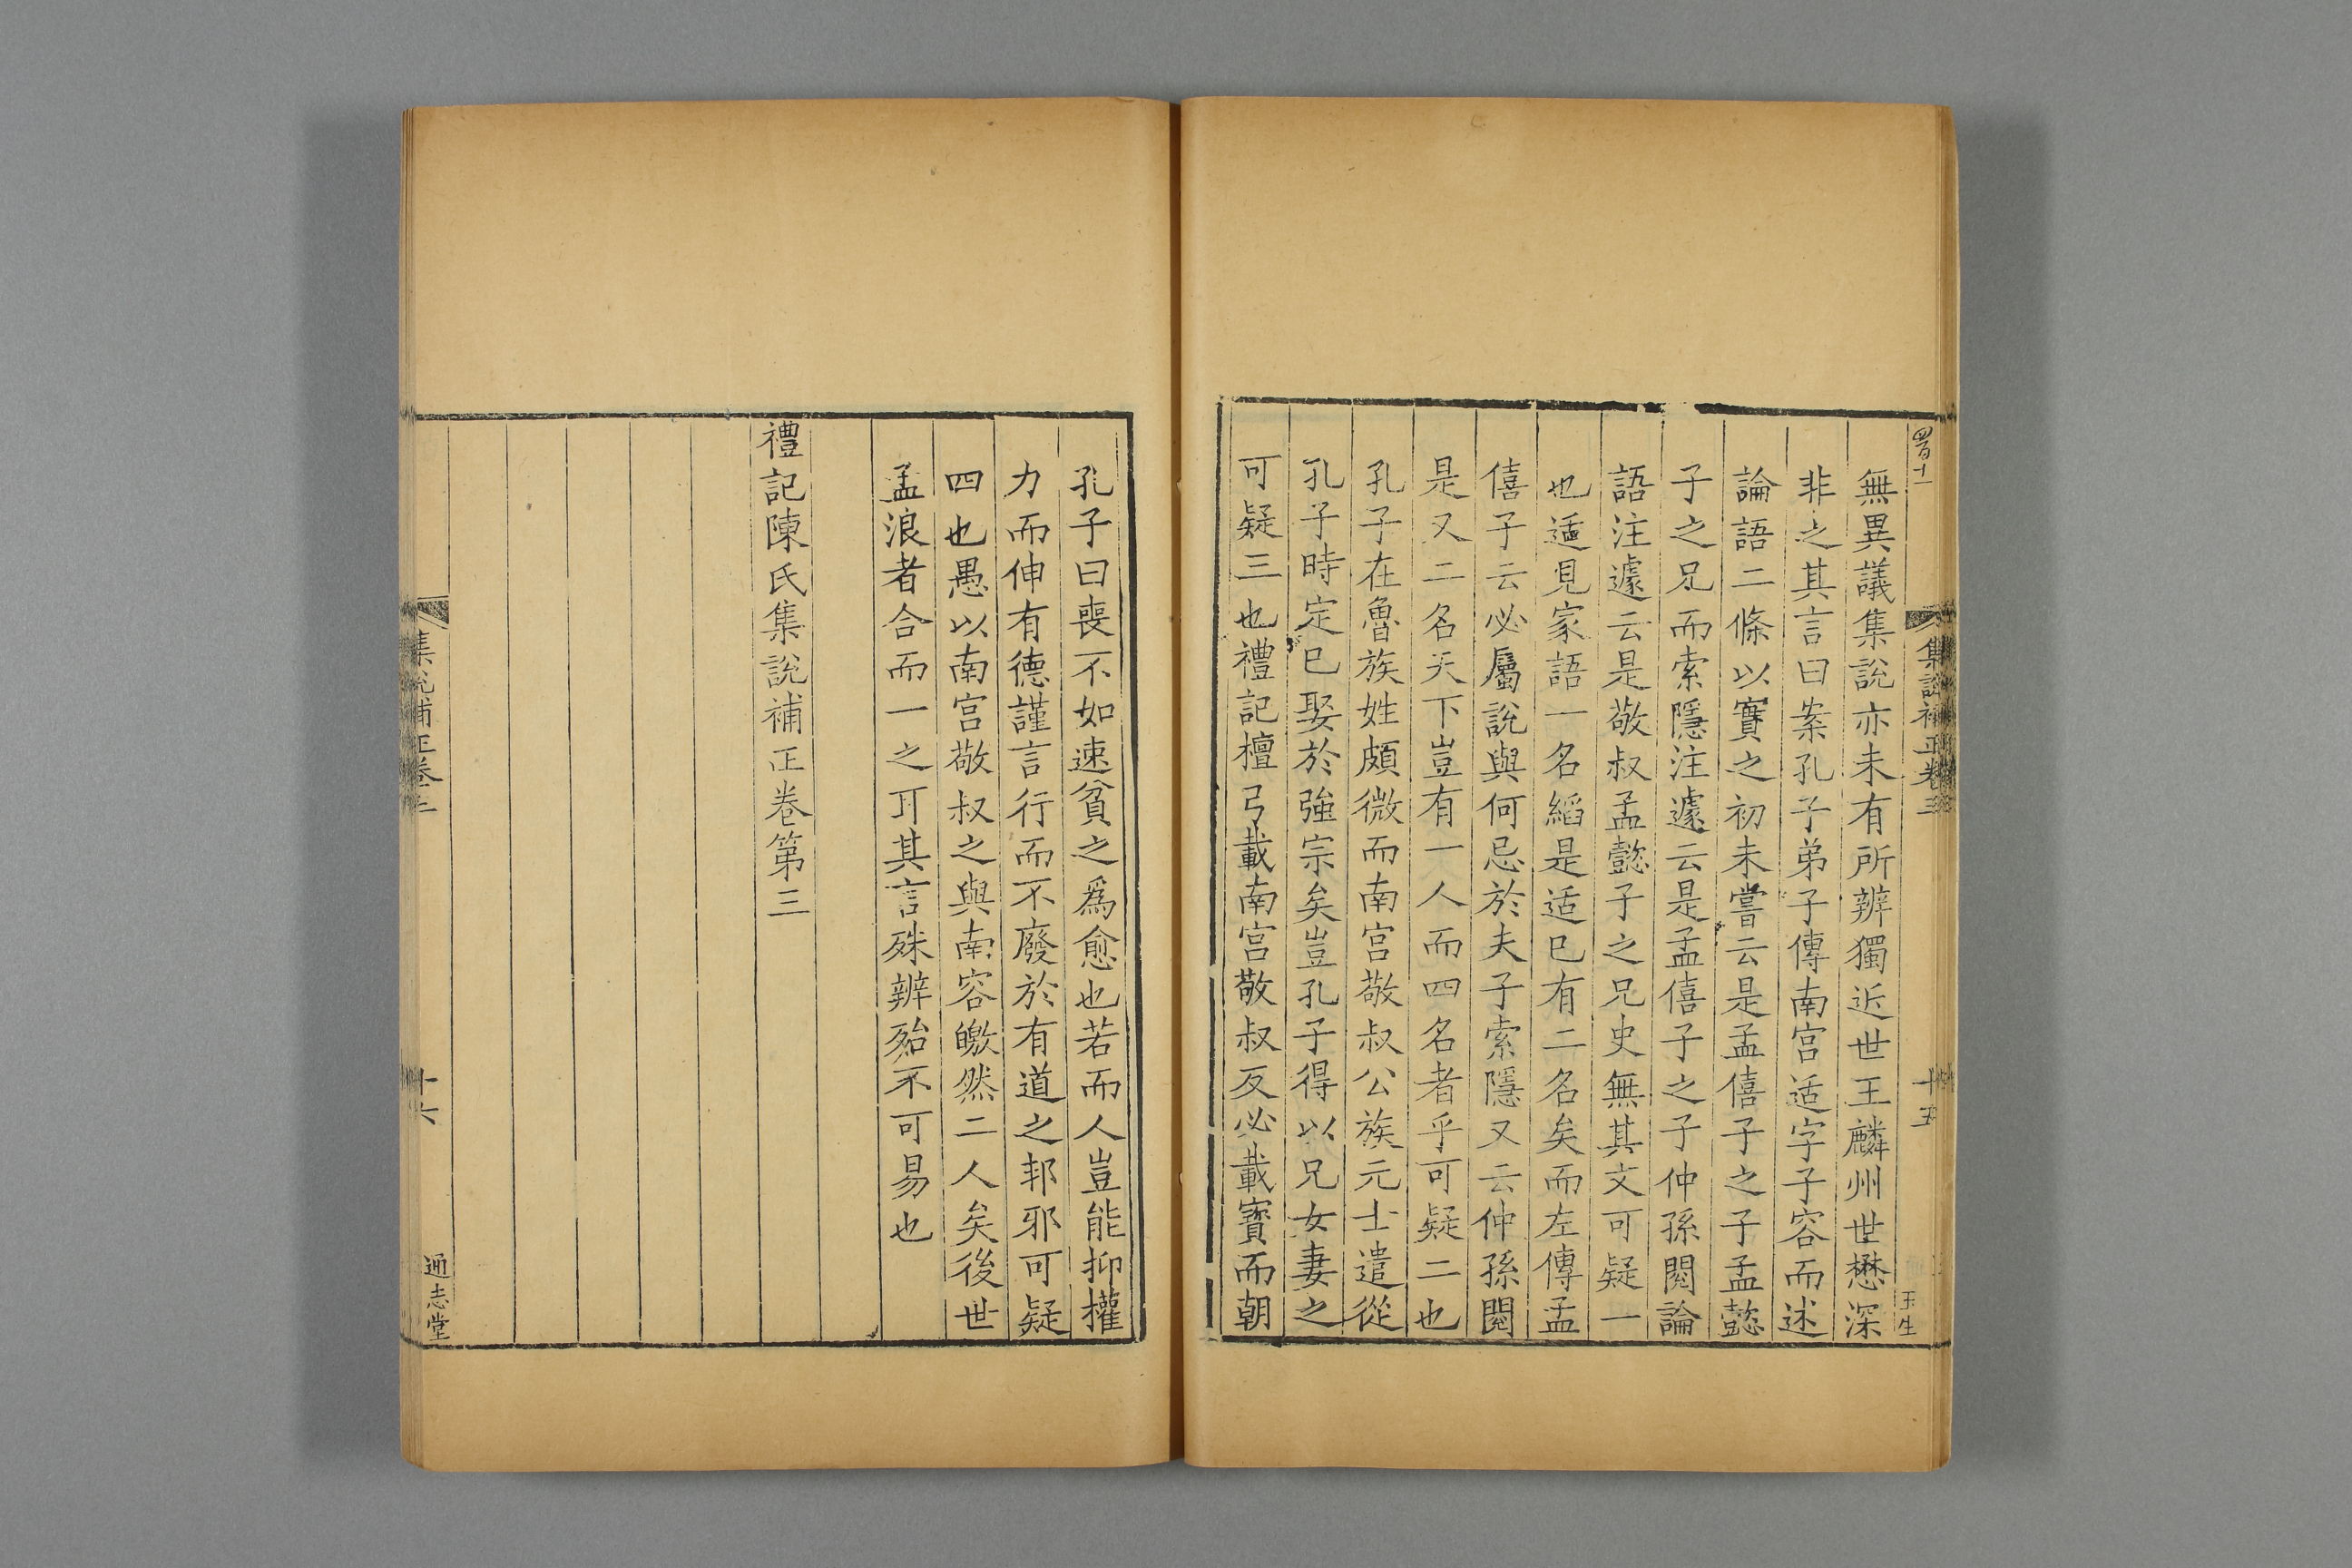 無異議集說亦未有所辨獨近世王麟州世懋深
非之其言曰案孔子弟子傳南宮适字子容而述
論語二條以實之初未嘗云是孟僖子之子孟懿
子之兄而索隱注遽云是孟僖子之子仲孫閱論
語注遽云是敬叔孟懿子之兄史無其文可疑一
也适見家語一名縚是适已有二名矣而左傳孟
僖子云必屬說與何忌於夫子索隱又云仲孫閱
是又二名天下豈有一人而四名者乎可疑二也
孔子在魯族姓頗微而南宮敬叔公族元士遣從
孔子時定已娶於強宗矣豈孔子得以兄女妻之
可疑三也禮記檀弓載南宮敬叔反必載寶而朝
集說補正卷三
十五
玉生
孔子曰喪不如速貧之爲愈也若而人豈能抑權
力而伸有德謹言行而不廢於有道之邦邪可疑
四也愚以南宮敬叔之與南容皦然二人矣後世
孟浪者合而一之耳其言殊辨殆不可易也
禮記陳氏集說補正卷第三
集說補正卷三
十六
通志堂